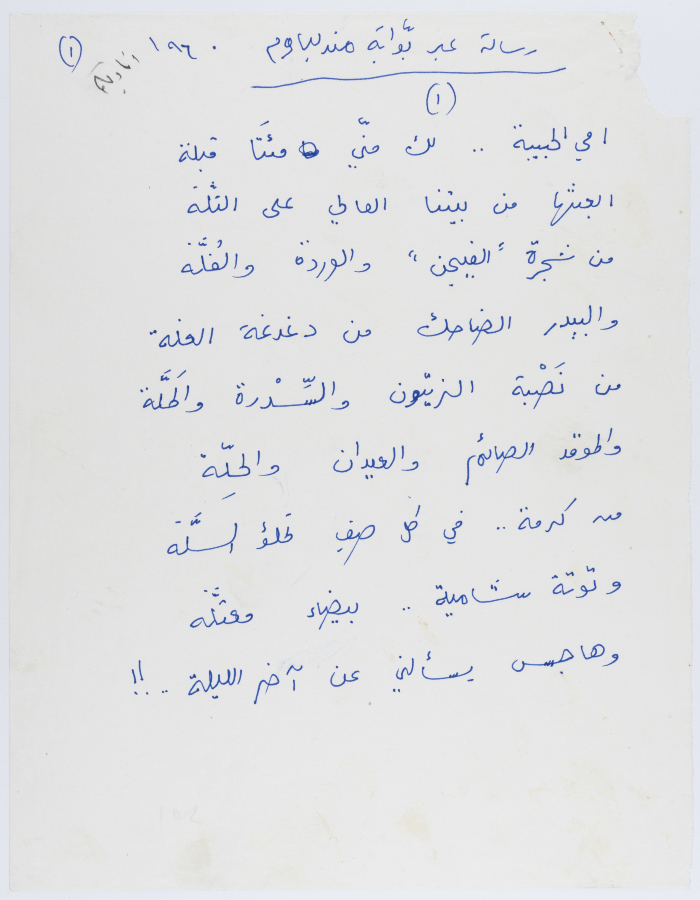 رسالة عبر بّوابة مندلباوم ١٩٦٠ (١)
(١)
امي الحبيبة .. لك منّي مئتَا قبلة
ابعثها من بيتنا العالي على التلّة
من شجرة "الفيجن" والوردة والفُلَّة
والبيدر الضاحك من دغدغة الغلة
من نَصْبة الزيتون والسِّدْرة والحَلَّة
والموقد الصائم والعيدان والحِلّة
من كرمة .. في كل صيفٍ تملؤ السلَّة
وتوتة شامية .. بيضاء معتلَّة
وهاجس يسألني عن آخر الليلة .. !!